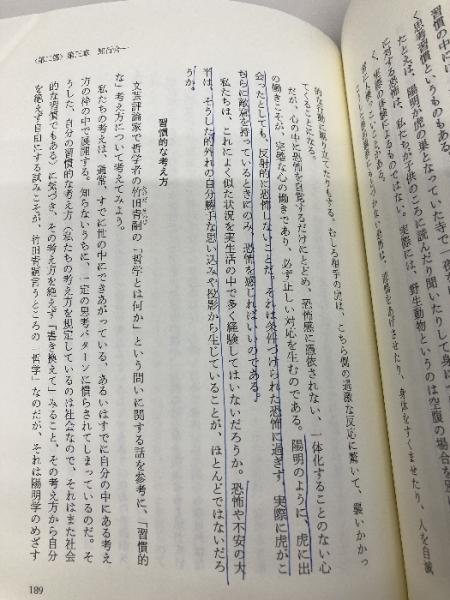 〈第二部〉第三章 知行合一
習慣の中に
く思考習慣というものもある。
たとえば、陽明が虎の巣となっていた寺で一夜
に対する恐怖は、私たちが子供のころに読んだり聞いたりして身に
く、実際の体験によるものではない。実際には、野生動物というのは空腹の場合を別
的な行動に駆り立てたりもする。むしろ相手の虎は、こちら側の過激な反応に驚いて、襲いかかっ
てくることになる。
だが、心の中に恐怖を自覚するだけにとどめ、恐怖感に憑依されない、一体化することのない心
の働きこそが、完璧な心の働きであり、必ず正しい対応を生むのである。陽明のように、虎に出
会ったとしても、反射的に恐怖しないことだ。それは条件づけられた恐怖に過ぎず、実際に虎がこ
ちらに敵意を持っているときにのみ、恐怖を感じればいいのである。
私たちは、これによく似た状況を実生活の中で多く経験してはいないだろうか。恐怖や不安の大
半は、そうした的外れの自分勝手な思い込みや投影から生じていることが、ほとんどではないだろ
うか。
習慣的な考え方
文芸評論家で哲学者の竹田青嗣の「哲学とは何か」という問いに関する話を参考に、「習慣的
な」考え方について考えてみよう。
私たちの考えは、通常、すでに世の中にできあがっている、あるいはすでに自分の中にある考え
方の枠の中で展開する。知らないうちに、一定の思考パターンに慣らされてしまっているのだ。そ
うした、自分の習慣的な考え方（私たちの考え方を規定しているのは社会なので、それはまた社会
的な習慣でもある）に気づき、その考え方を絶えず「書き換えて」みること、その考え方から自分
を絶えず自由にする試みこそが、竹田青嗣言うところの「哲学」なのだが、それは陽明学のめざす
189